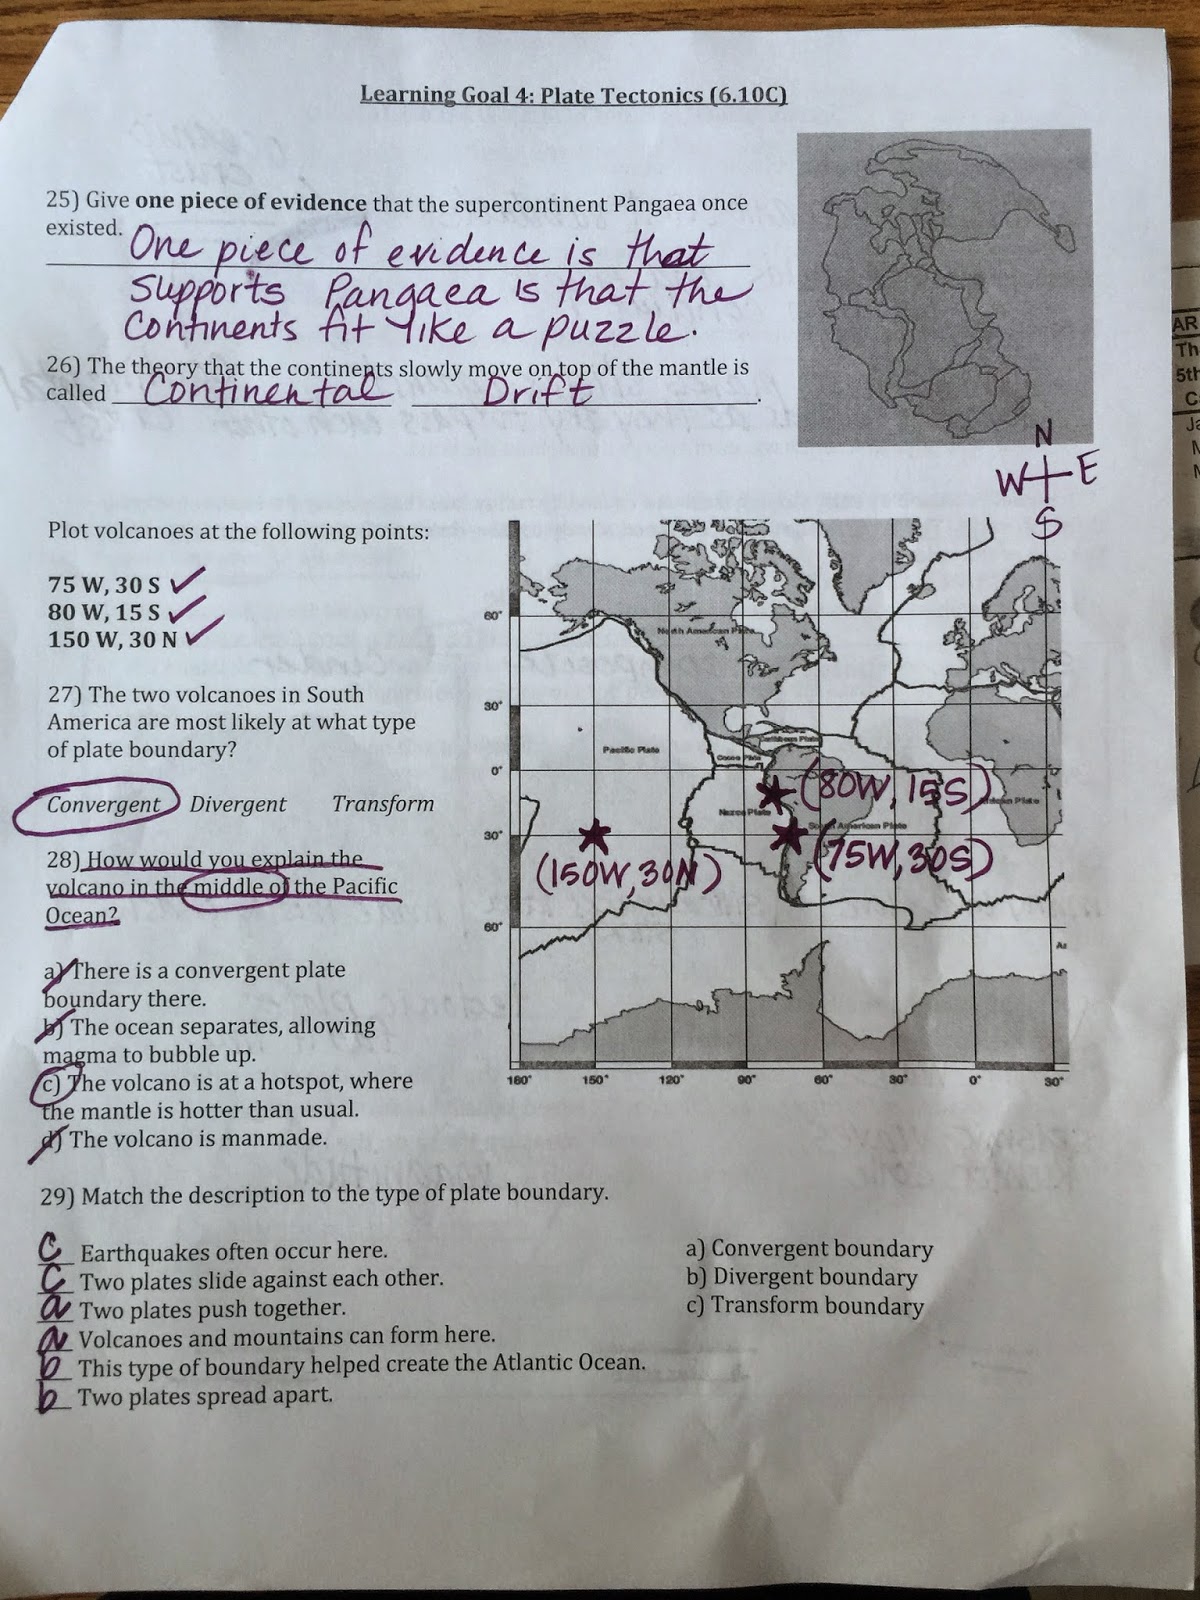 Learning Goal 4: Plate Tectonics (6.10C)
25) Give one piece of evidence that the supercontinent Pangaea once
existed. One piece of evidence is that
supports Pangaea is that the
continents fit like a puzzle.
26) The theory that the continents slowly move on top of the mantle is
called Continental Drift.
N
W E
S
Plot volcanoes at the following points:
75 W, 30 S ✓
80 W, 15 S ✓
150 W, 30 N ✓
27) The two volcanoes in South
America are most likely at what type
of plate boundary?
Convergent Divergent Transform
28) How would you explain the
volcano in the middle of the Pacific
Ocean?
a) There is a convergent plate
boundary there.
b) The ocean separates, allowing
magma to bubble up.
c) The volcano is at a hotspot, where
the mantle is hotter than usual.
d) The volcano is manmade.
60°
30°
0°
30°
60°
North American Plate
Pacific Plate
Caribbean Plate
Cocos Plate
Nazca Plate
South American Plate
African Plate
(80W, 15S)
(75W, 30S)
(150W, 30N)
180° 150° 120° 90° 60° 30° 0° 30°
29) Match the description to the type of plate boundary.
c Earthquakes often occur here.
c Two plates slide against each other.
a Two plates push together.
a Volcanoes and mountains can form here.
b This type of boundary helped create the Atlantic Ocean.
b Two plates spread apart.
a) Convergent boundary
b) Divergent boundary
c) Transform boundary
AR
Th
5th